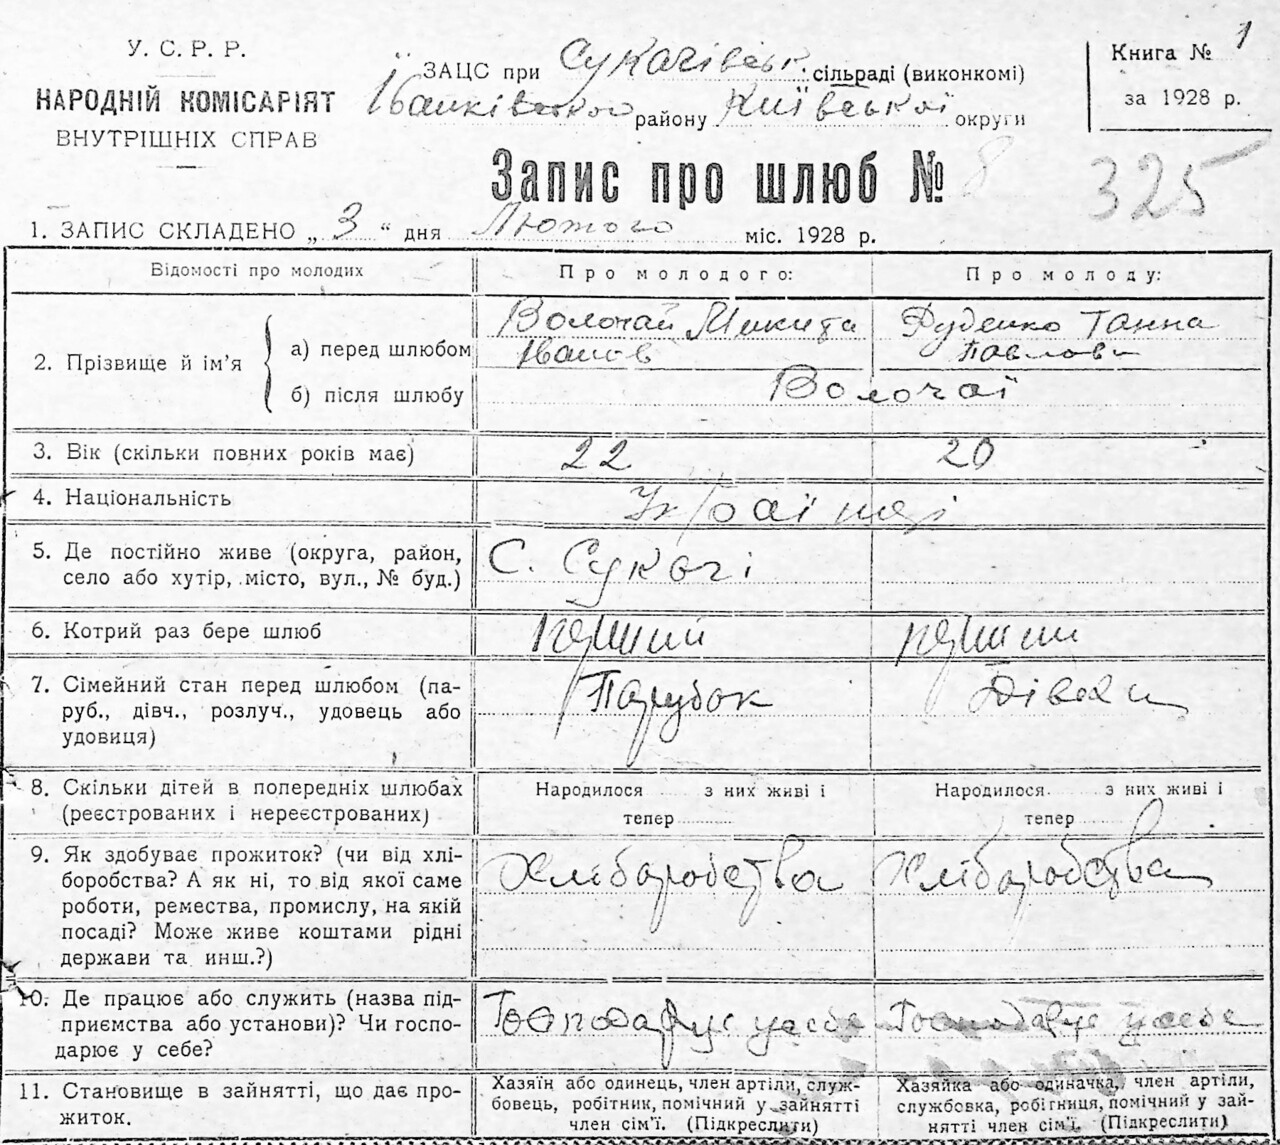 У. С. Р. Р.
НАРОДНІЙ КОМІСАРІЯТ
ВНУТРІШНІХ СПРАВ
ЗАЦС при Сукачівськ. сільраді (виконкомі)
Іванківського району Київської округи
Книга № 1
за 1928 р.
Запис про шлюб № 8
325
1. ЗАПИС СКЛАДЕНО „ 3 “ дня Лютого міс. 1928 р.
Відомості про молодих
Про молодого:
Про молоду:
2. Прізвище й ім’я
а) перед шлюбом
Волочай Микита
Іванов
Руденко Ганна
Павлови
б) після шлюбу
Волочаї
3. Вік (скільки повних років має)
22
20
4. Національність
Українці
5. Де постійно живе (округа, район,
село або хутір, місто, вул., № буд.)
С. Сукачі
6. Котрий раз бере шлюб
перший
перший
7. Сімейний стан перед шлюбом (па-
руб., дівч., розлуч., удовець або
удовиця)
Парубок
Дівка
8. Скільки дітей в попередніх шлюбах
(реєстрованих і нереєстрованих)
Народилося з них живі і
тепер
Народилося з них живі і
тепер
9. Як здобуває прожиток? (чи від хлі-
боробства? А як ні, то від якої саме
роботи, ремества, промислу, на якій
посаді? Може живе коштами рідні
держави та инш.?)
Хліборобства
Хліборобства
10. Де працює або служить (назва під-
приємства або установи)? Чи госпо-
дарює у себе?
Господарує у себе
Господарує у себе
11. Становище в зайнятті, що дає про-
житок.
Хазяїн або одинець, член артіли, служ-
бовець, робітник, помічний у зайнятті
член сім’ї. (Підкреслити)
Хазяйка або одиначка, член артіли,
службовка, робітниця, помічний у зай-
нятті член сім’ї. (Підкреслити)